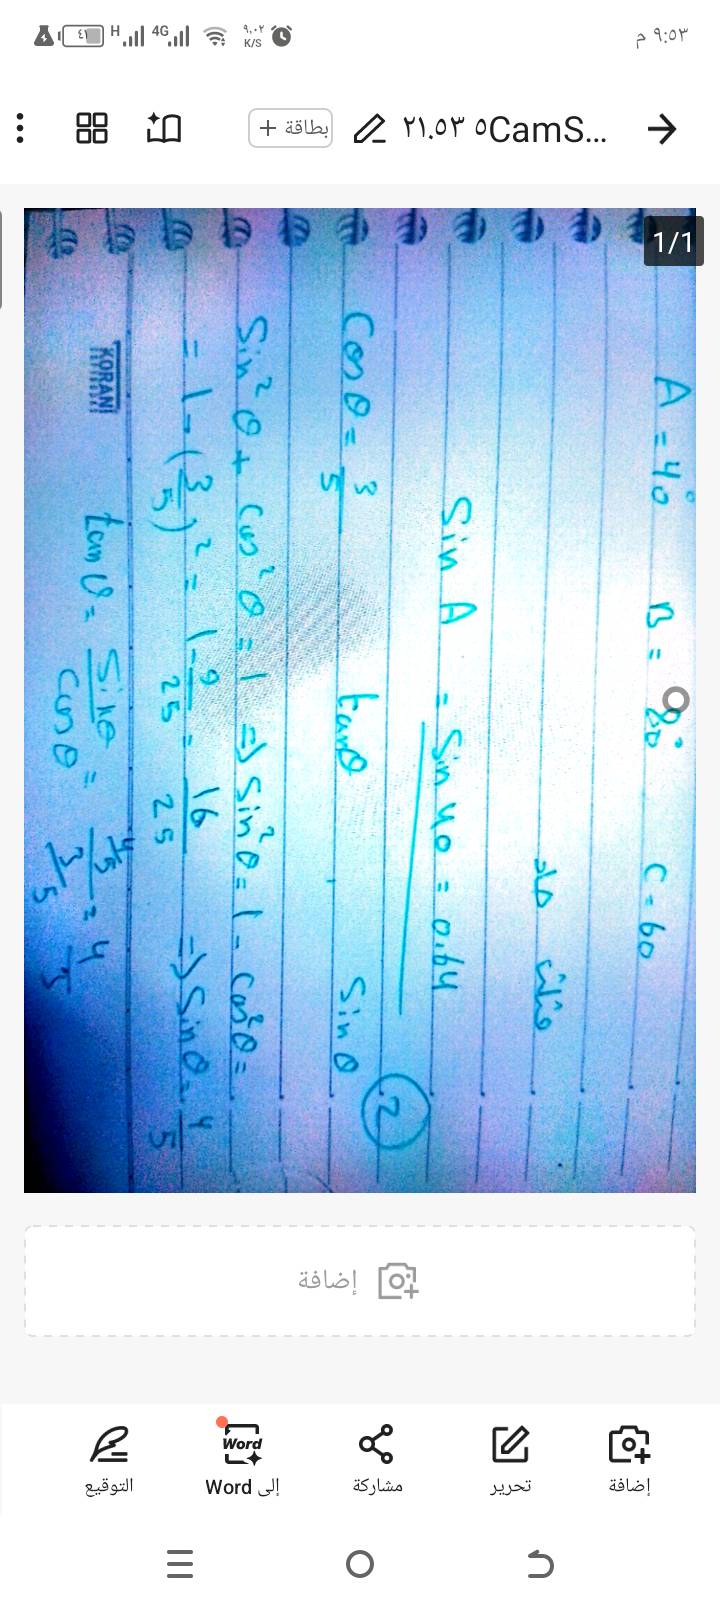 ٩:٥٣ م
٩,٠٢ K/S
4G
H
٤١
CamS...٥ ٢١.٥٣
بطاقة +
1/1
A = 40° B = 80° C = 60
مثلث حاد
Sin A = Sin 40 = 0.64
2
Cos θ = 3/5 tan θ Sin θ
Sin² θ + Cos² θ = 1 => Sin² θ = 1 - Cos² θ =
= 1 - (3/5)² = 1 - 9/25 = 16/25 => Sin θ = 4/5
tan θ = Sin θ / Cos θ = 4/5 / 3/5 = 4/3
KORANI
إضافة
إضافة
تحرير
مشاركة
Word
إلى Word
التوقيع